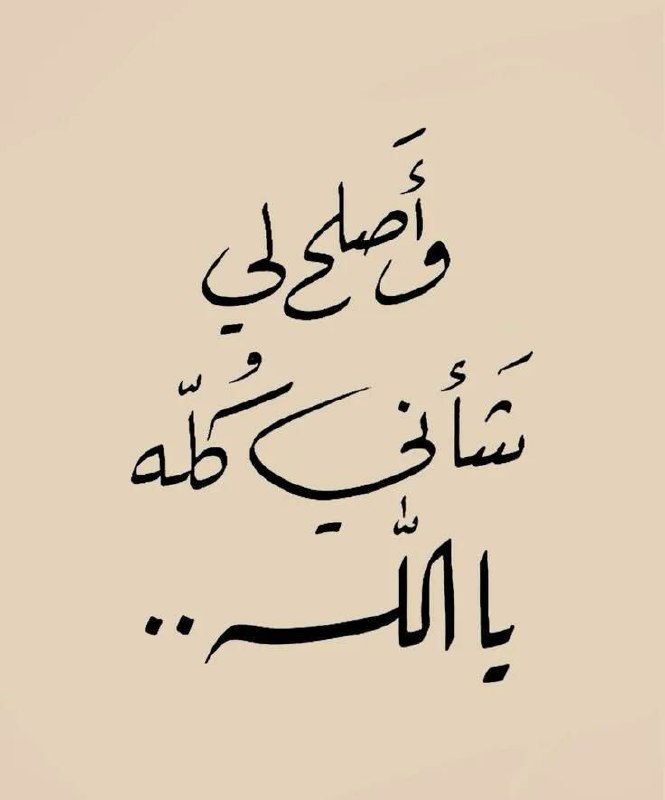 وَأَصلح لي
شَأني كُلّه
يا اللّٰه ..